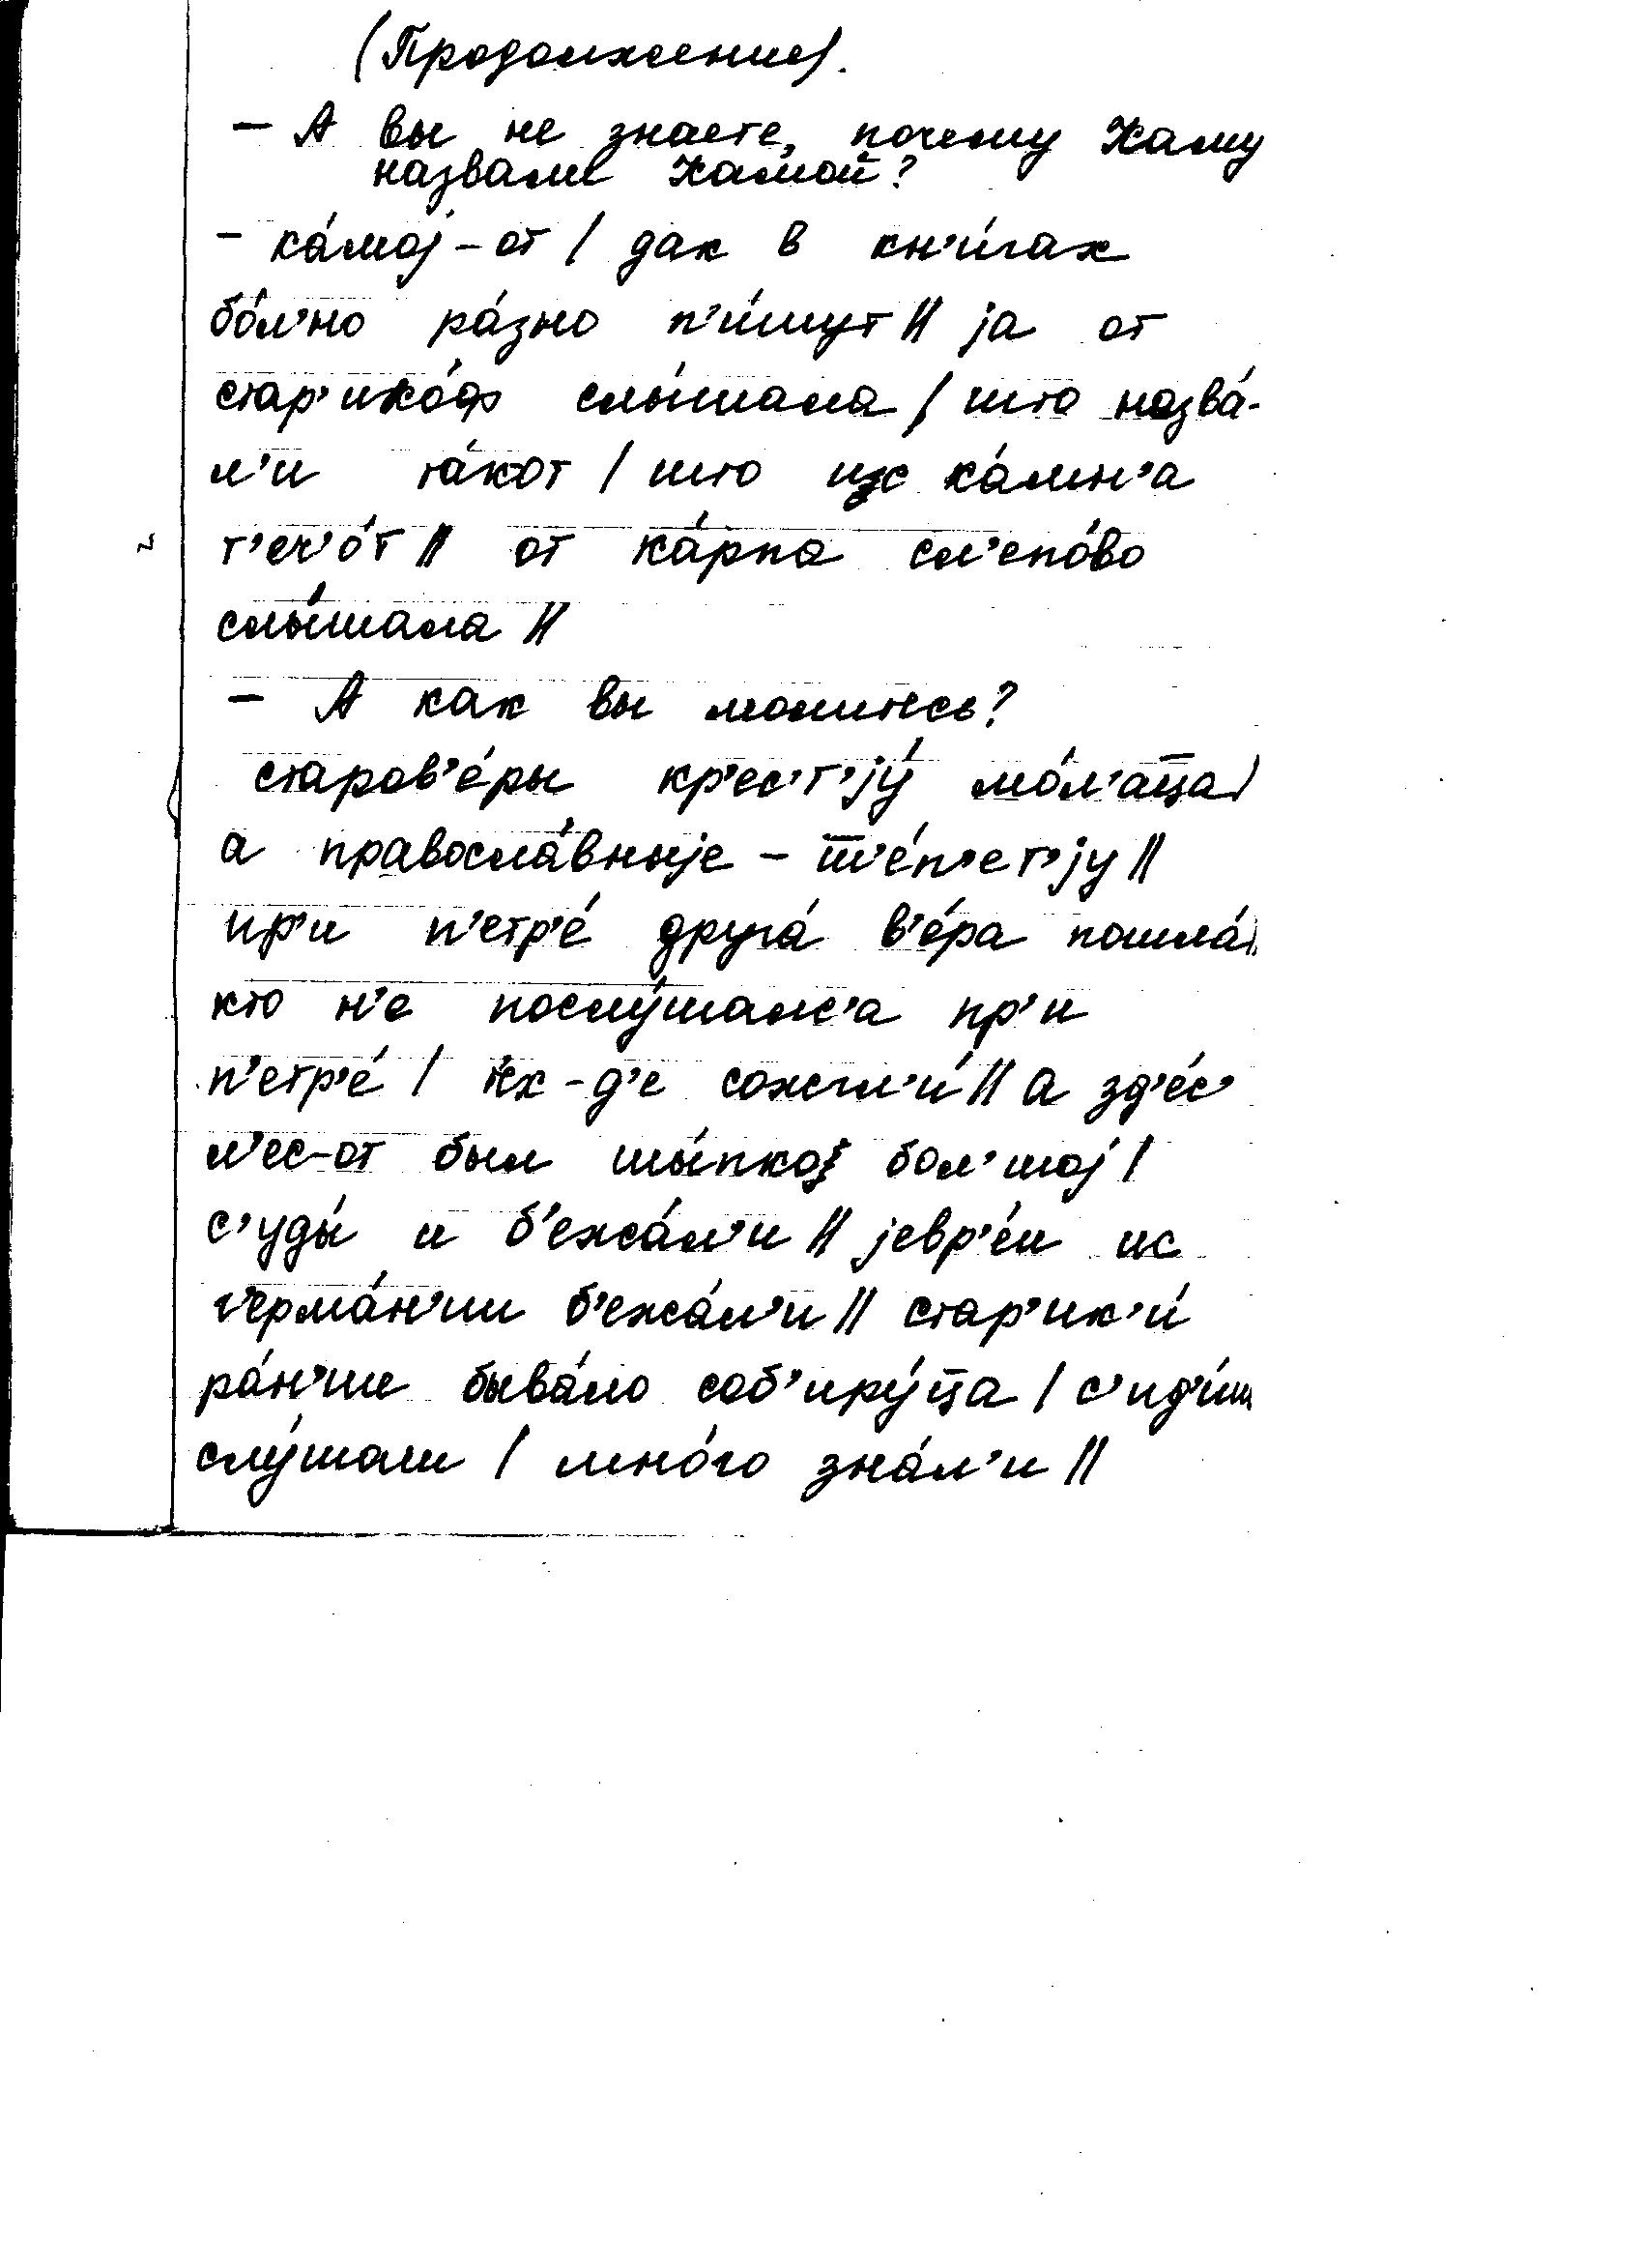 (Продолжение).
– А вы не знаете, почему Каму
назвали Камой?
– ка́мој – от / дак в кн'и́гах
бо́л'но ра́зно п'и́шут // ја от
стар'ико́ф слы́шала / што назва́-
л'и та́кот / што ис ка́мн'а
т'еч'о́т // от ка́рпа сл'епо́во
слы́шала //
– А как вы молитесь?
старов'е́ры кр'ес'т'ју́ мо́л'аца /
а правосла́вныје – ш'е́п'ет'ју //
пр'и п'етр'е́ друга́ в'е́ра пошла́ //
кто н'е послу́шалс'а пр'и
п'етр'е́ / тех – д'е сожгл'и́ // а зд'е́с'
л'ес-от был шы́пко бол'шој /
с'уды́ и б'ежа́л'и // јевр'е́и ис
г'ерма́н'ии б'ежа́л'и // стар'ик'и́
ра́н'ше быва́ло соб'иру́ца / с'ид'и́ш
слу́шаш / мно́го зна́л'и //